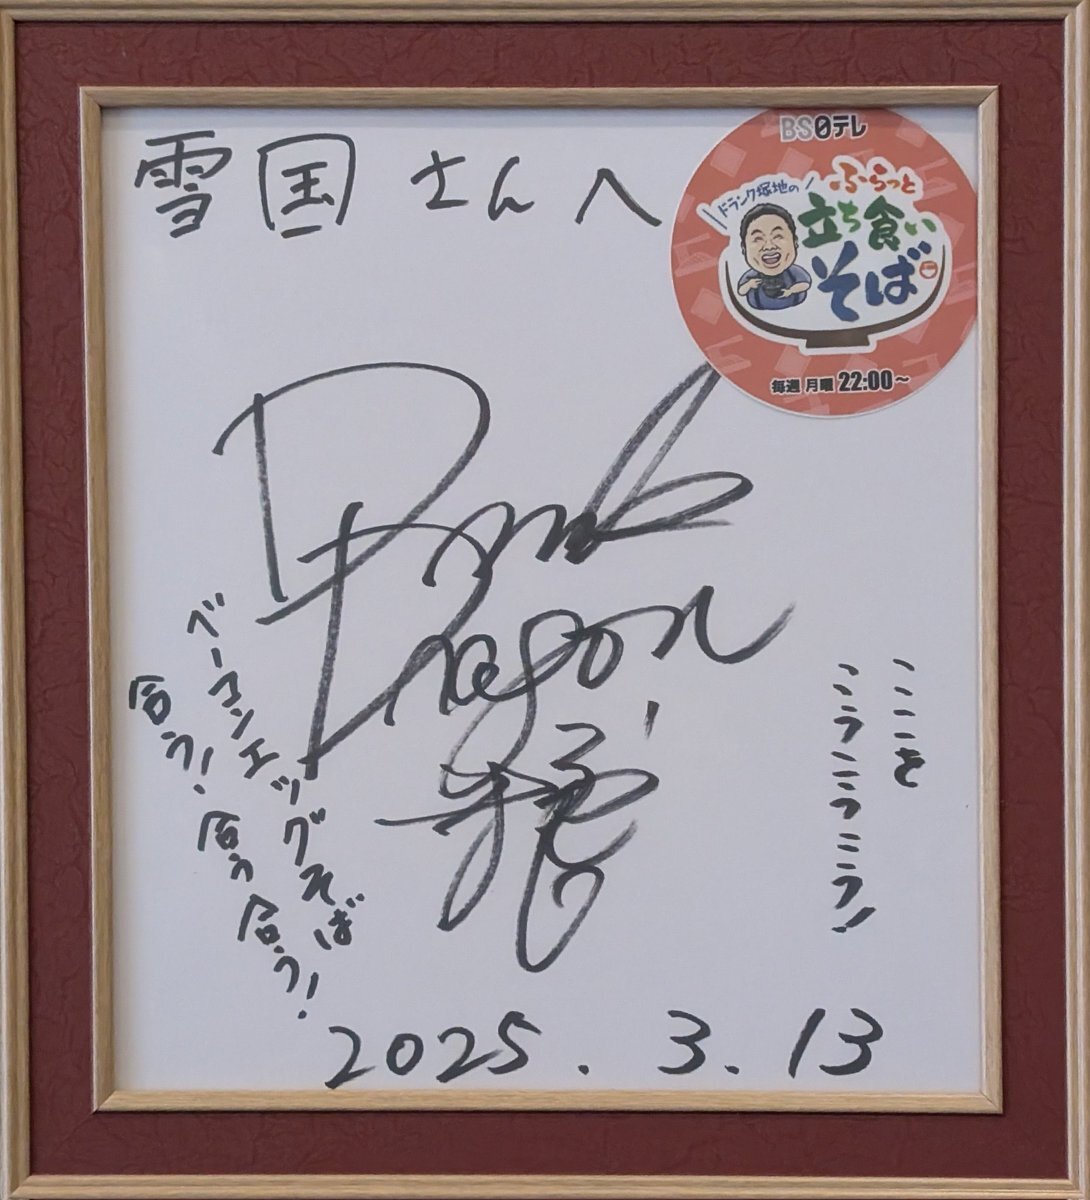 雪国 さんへ
BS日テレ
ドランク塚地の
ふらっと
立ち食い
そば
毎週 月曜 22:00～
Drunk
Dragon
ここを
こうこうこう!
ベーコンエッグそば
合う!合う合う!
2025.3.13